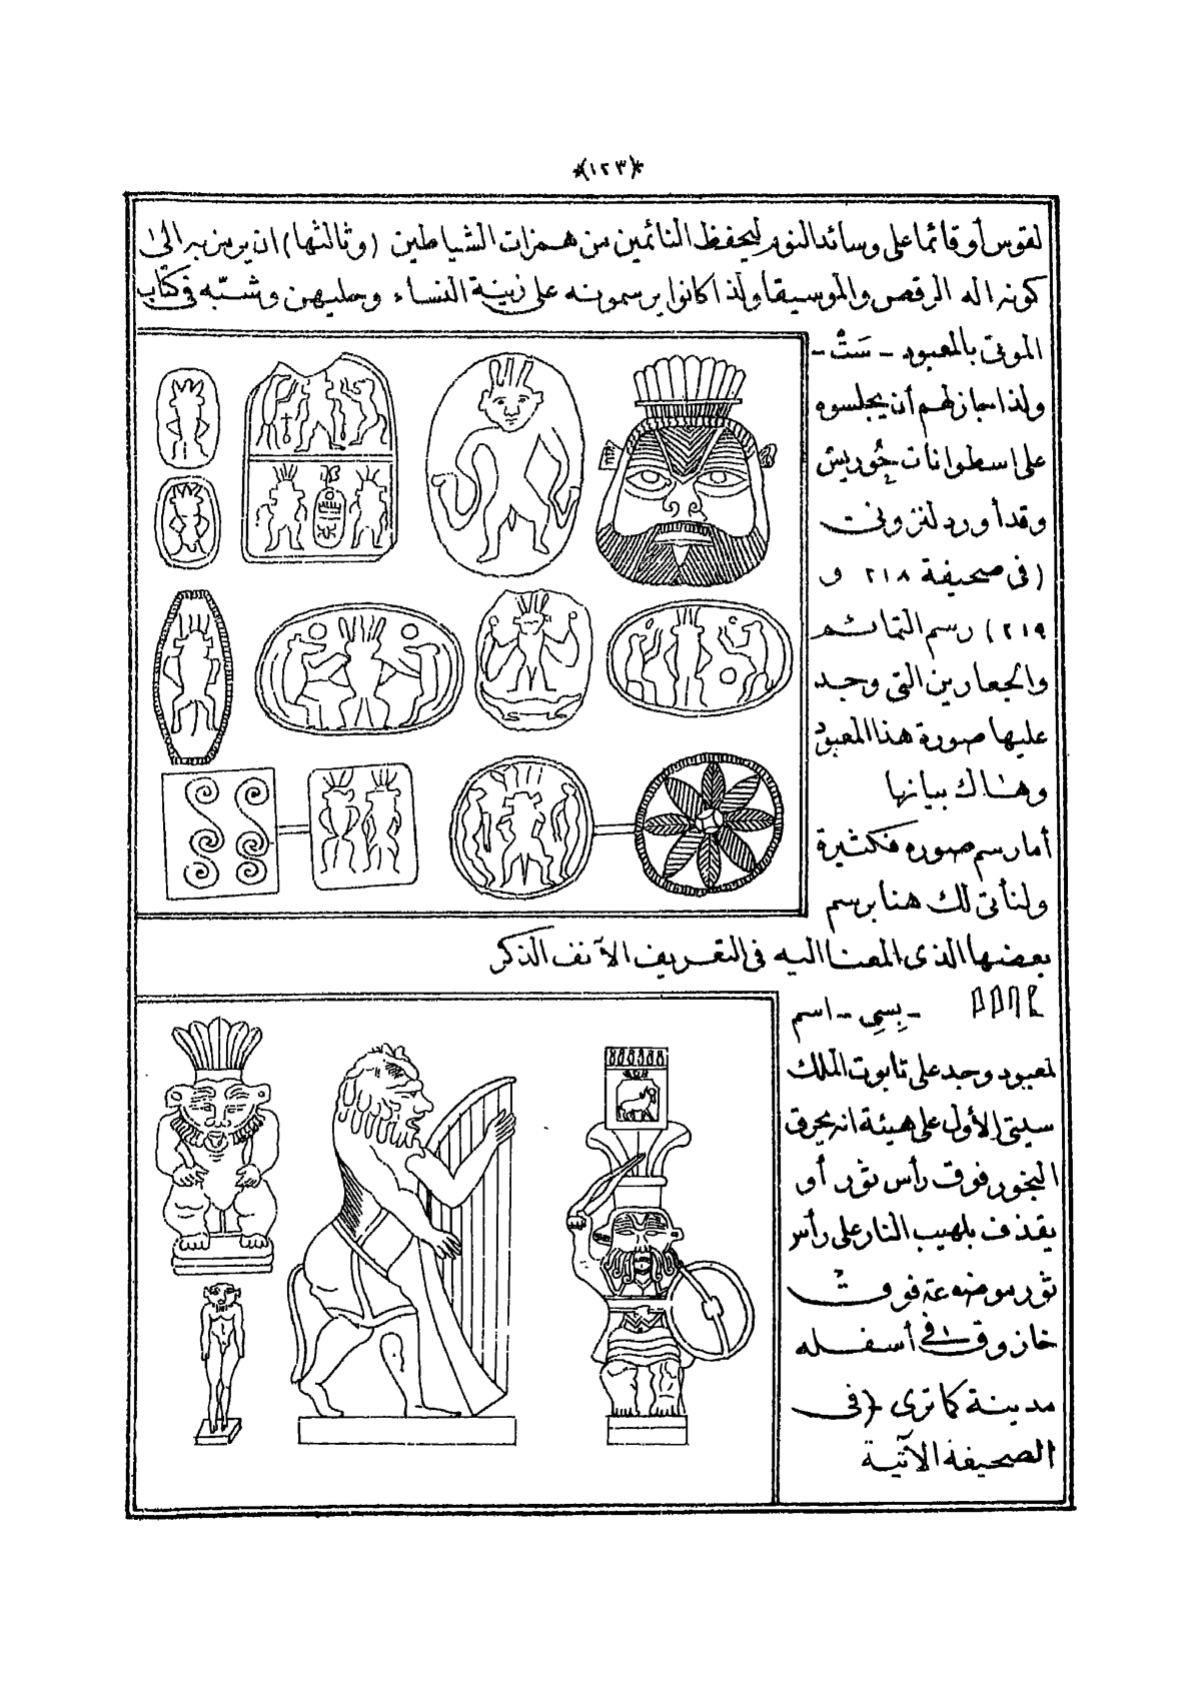 *(١٢٣)*
لقوس أو قائما على وسائد النوم ليحفظ النائمين من همزات الشياطين (وثالثها) ان يرمز به الى
كونه اله الرقص والموسيقا ولذا كانوا يرسمونه على زينة النساء وحليهن وشبّه فى كتاب
الموتى بالمعبود - سَتْ -
ولذا جاز لهم أن يجلسوه
على اسطوانات حُوريس
وقد أورد لنزونى
(فى صحيفة ٢١٨ و
٢١٩) رسم التمائم
والجعارين التى وجد
عليها صورة هذا المعبود
وهاك بيانها
أما رسم صوره فكثيرة
ولنأتى لك هنا برسم
بعضها الذى المعنا اليه فى التعريف الآنف الذكر
- بِسِى - اسم
لمعبود وجد على تابوت الملك
سيتى الأول على هيئة انه يحرق
البخور فوق رأس ثور أو
يقذف بلهيب النار على رأس
ثور موضوعة فوق
خازوق فى أسفله
مدينة كاترى (فى
الصحيفة الآتية